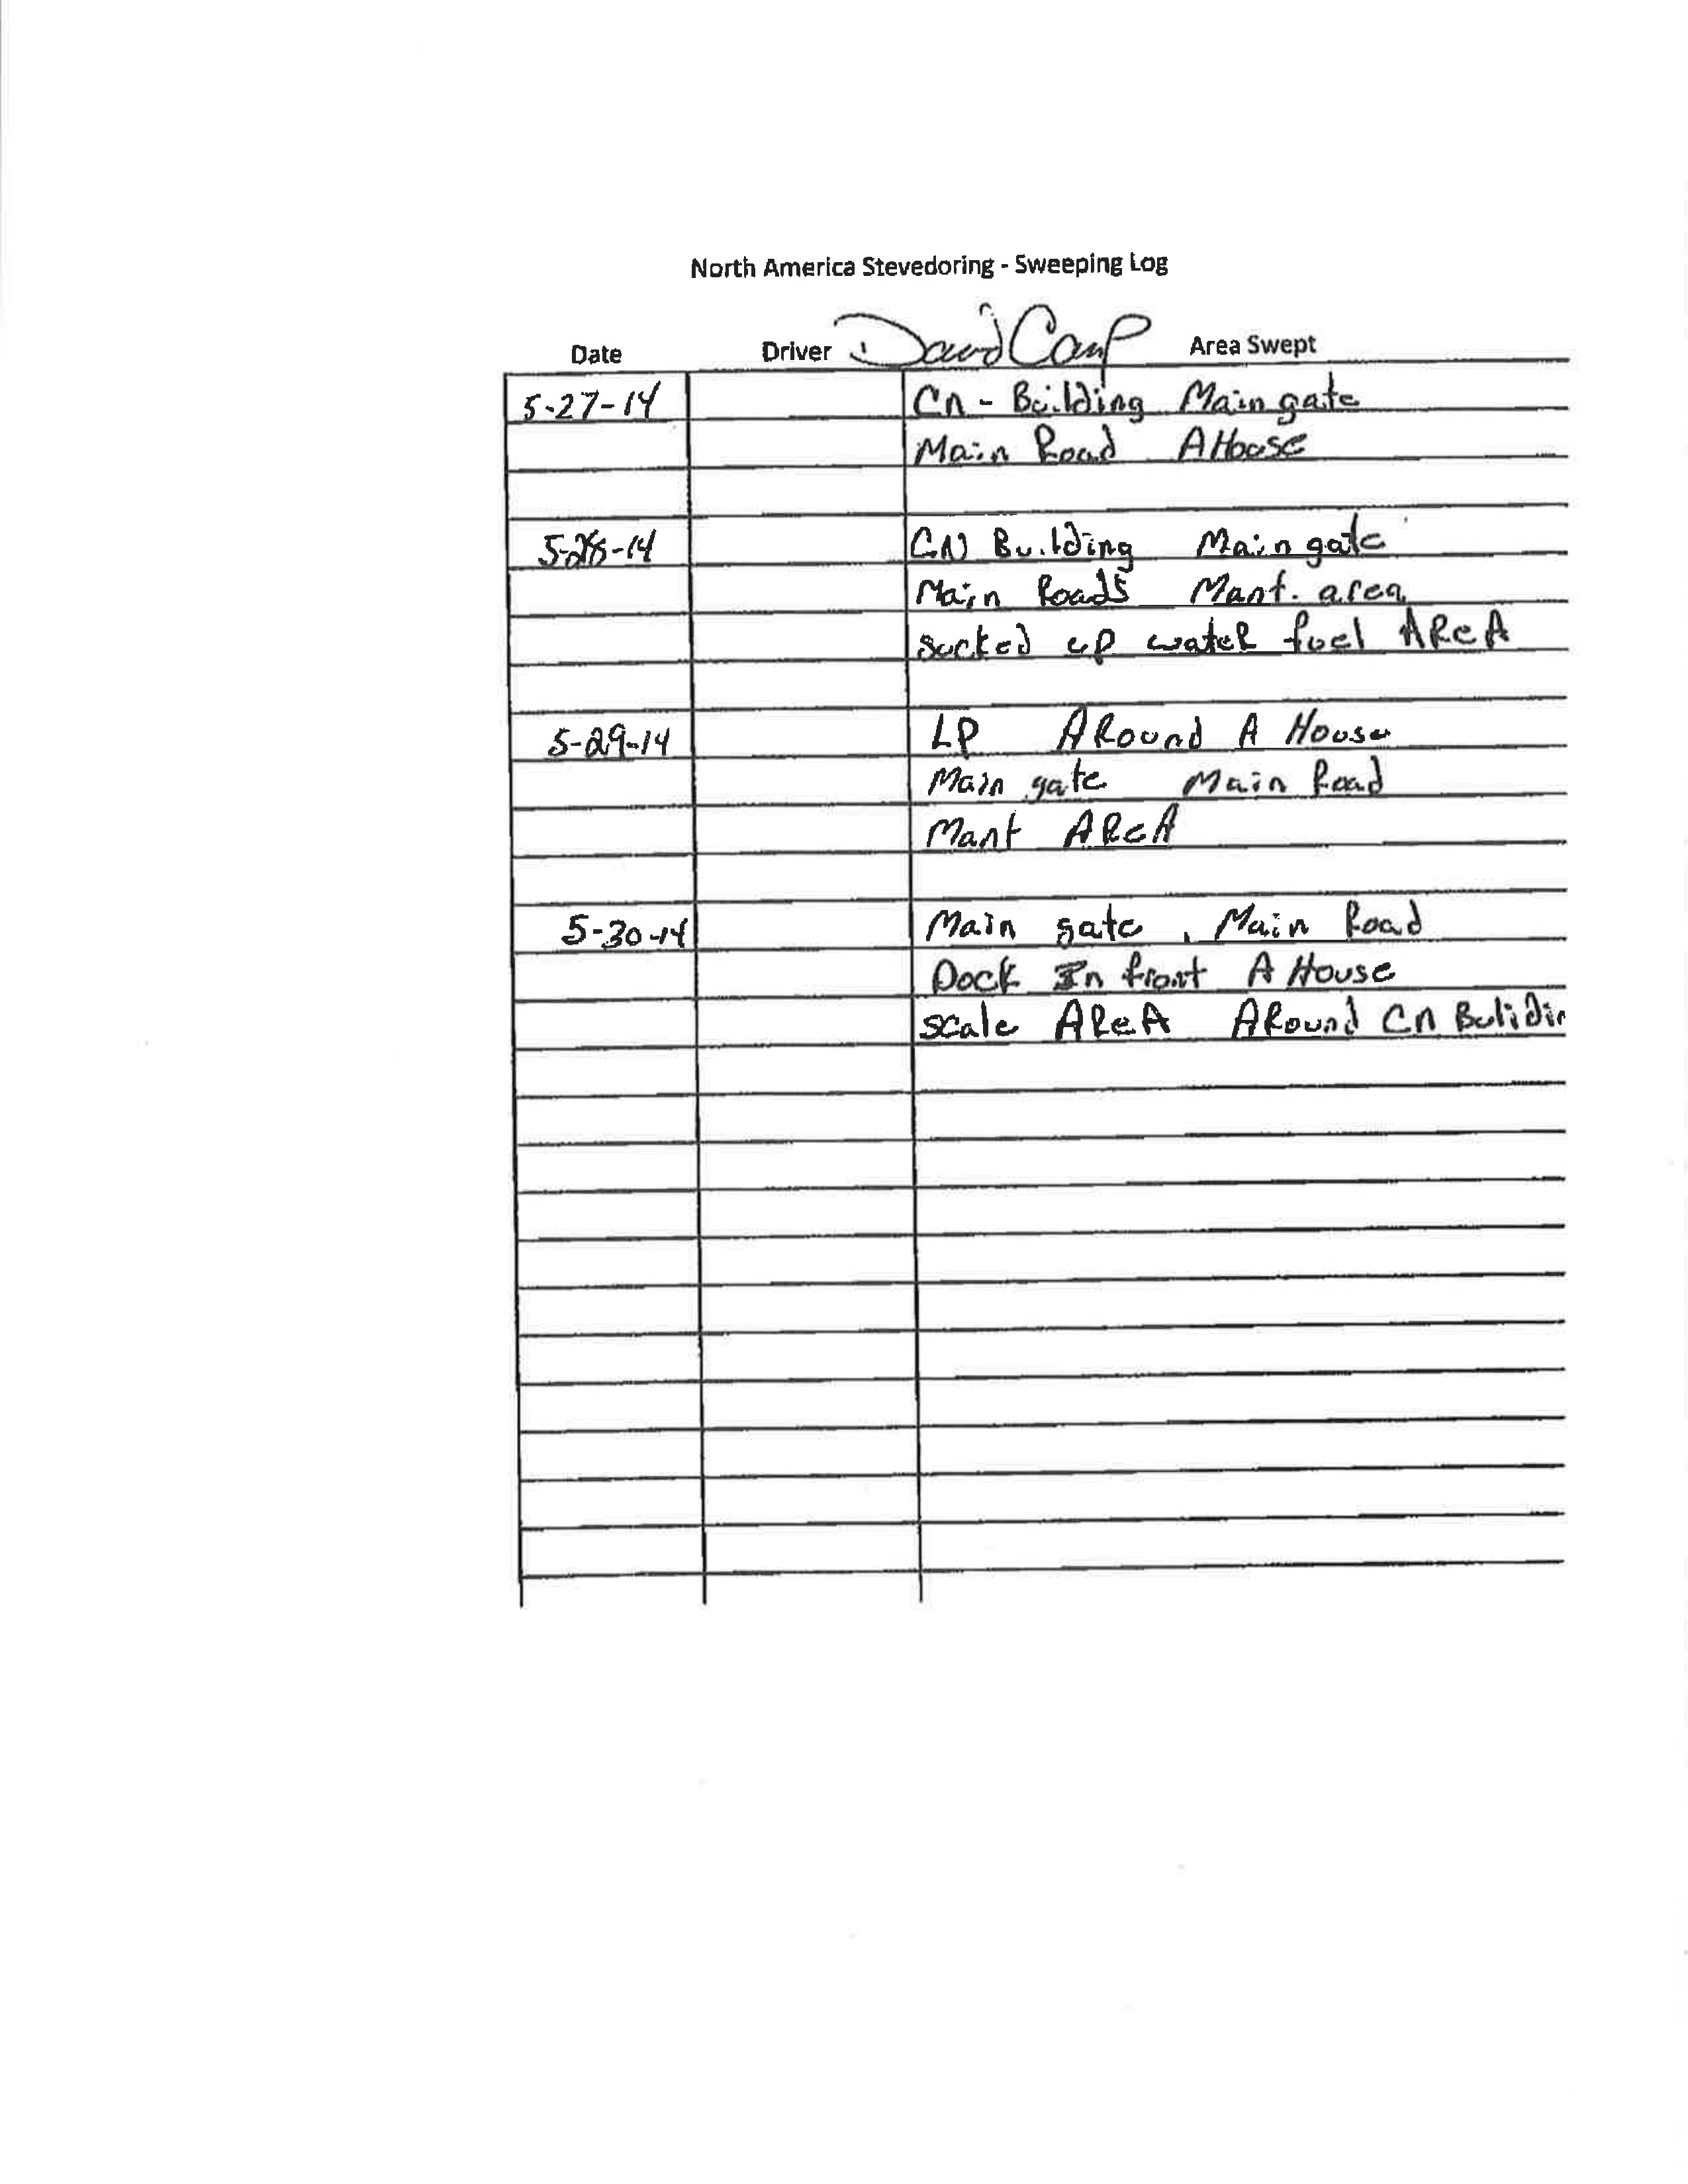 North America Stevedoring - Sweeping Log
Date Driver David Camp Area Swept
5-27-14 Cn - Building Main gate
Main Road A House
5-28-14 CN Building Main gate
Main Roads Mant. area
sucked up water fuel AReA
5-29-14 LP ARound A House
Main gate Main Road
Mant AReA
5-30-14 Main gate, Main Road
Dock In front A House
scale AReA ARound Cn Bulidin